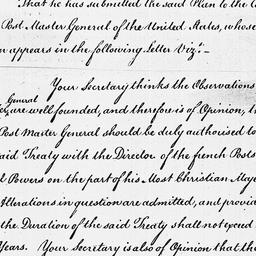 That he has submitted the said Plan to the
Post Master General of the United States, whose
appears in the following Letter Viz.t
Your Secretary thinks the Observations
General
are well founded, and therefore is of Opinion,
Post Master General should be duly authorised to
Treaty with the Director of the french Posts
Powers on the part of his Most Christian
Alterations in question are admitted, and
the Duration of the said Treaty shall not exceed
Years. Your Secretary is also of Opinion that